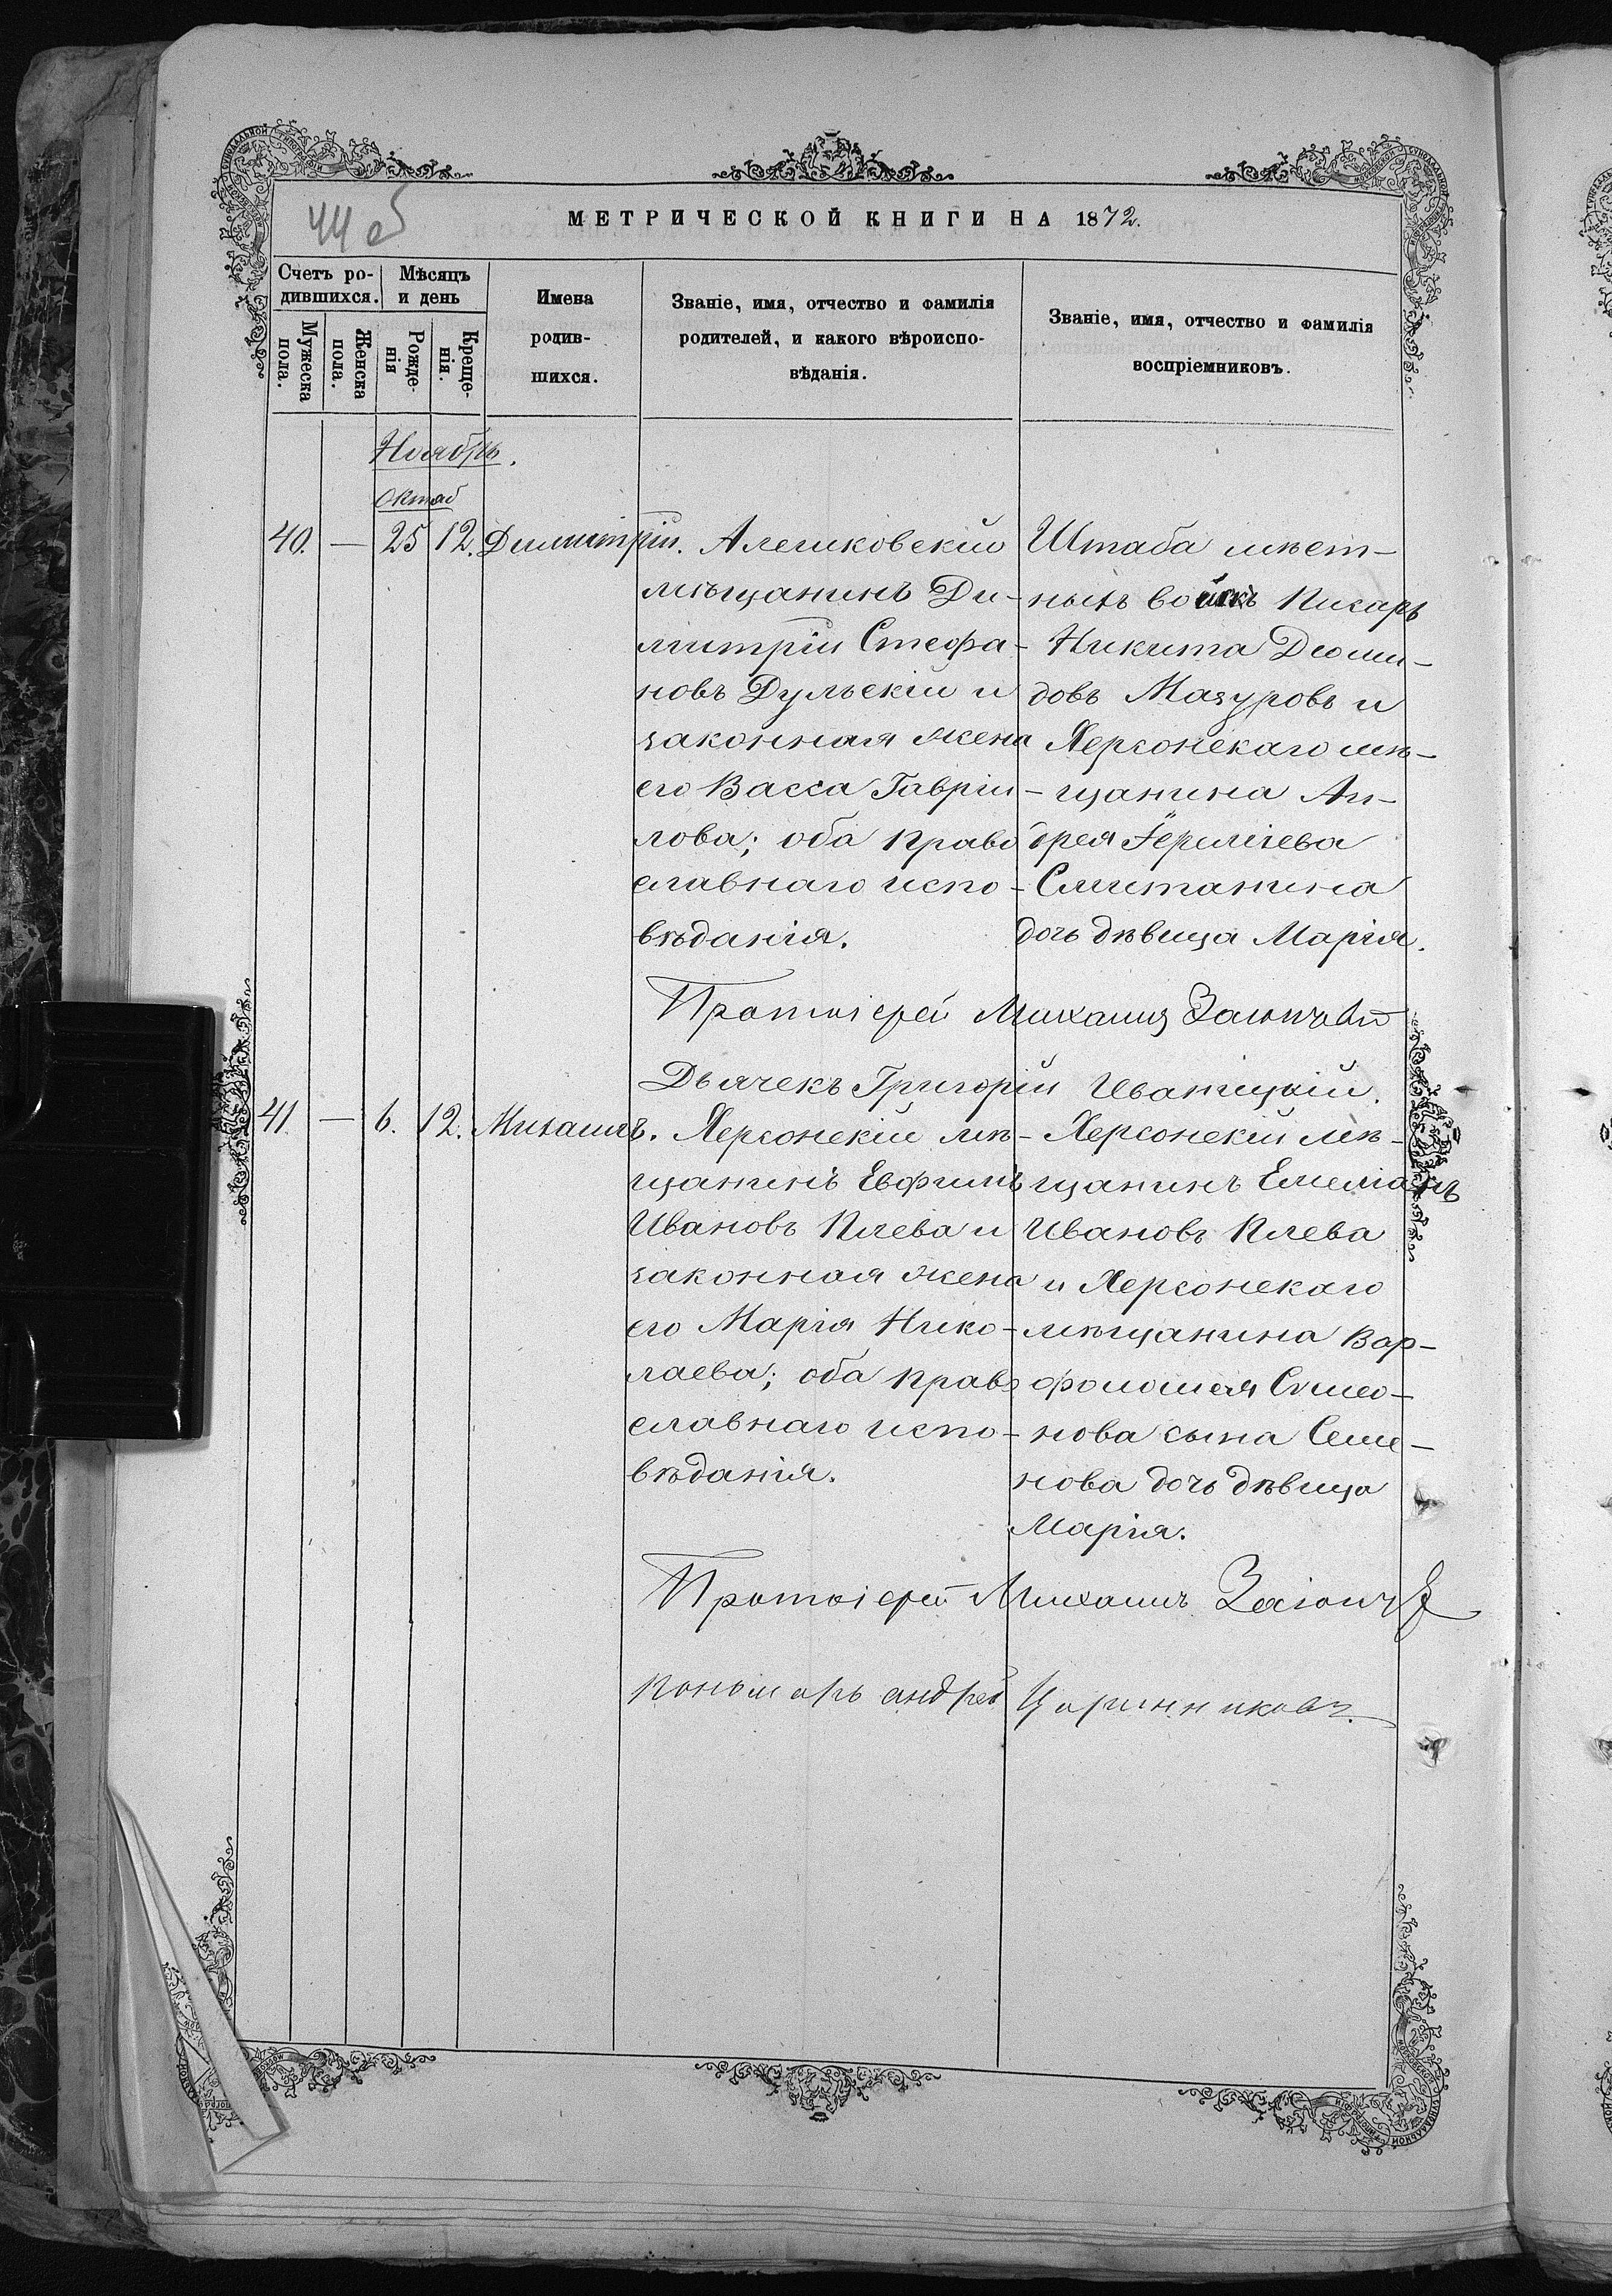 44 об
МЕТРИЧЕСКОЙ КНИГИ НА 1872.
Счетъ ро-
дившихся.
Мѣсяцъ
и день
Мужеска
пола.
Женска
пола.
Рожде-
нія
Креще-
нія.
Имена
родив-
шихся.
Званіе, имя, отчество и фамилія
родителей, и какого вѣроиспо-
вѣданія.
Званіе, имя, отчество и фамилія
воспріемниковъ.
Ноябрь.
Октяб
40. — 25 12. Димитрій.
Алешковскій
мѣщанинъ Ди-
митрій Стефа-
новъ Дульскій и
законная жена
его Васса Гаврiи-
лова; оба право
славнаго испо-
вѣданія.
Штаба мѣст-
ныхъ войскъ Писарь
Никита Дюми-
довъ Мазуровъ и
Херсонскаго мѣ-
щанина Ан-
дрея Іереміева
Смитанина
дочь дѣвица Марія.
Протоіерей Михаилъ
Дьячекъ Григорій Иваницкій.
41. — 6. 12. Михаилъ.
Херсонскій мѣ-
щанинъ Евфимъ
Ивановъ Плева и
законная жена
его Марія Нико-
лаева; оба право
славнаго испо-
вѣданія.
Херсонскій мѣ-
щанинъ Емеліанъ
Ивановъ Плева
и Херсонскаго
мѣщанина Вар-
фоломея Симео-
нова сына Семе-
нова дочь дѣвица
Марія.
Протоіерей Михаилъ
Пономарь Андрей Царинниковъ.